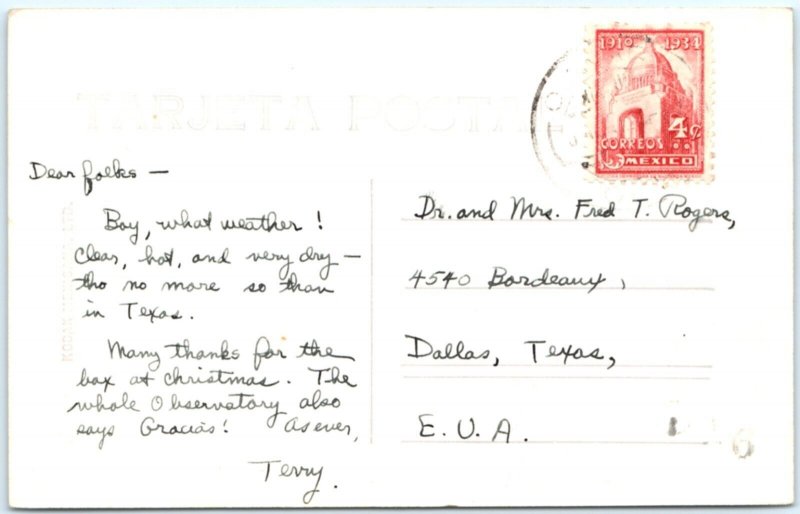 TARJETA POSTA
1910 1934
4¢
CORREOS
MEXICO
Dear folks —
Boy, what weather!
Clear, hot, and very dry —
tho no more so than
in Texas.
Many thanks for the
box at Christmas. The
whole Observatory also
says Gracias! As ever,
Terry.
Dr. and Mrs. Fred T. Rogers,
4540 Bordeaux,
Dallas, Texas,
E.U.A.
6